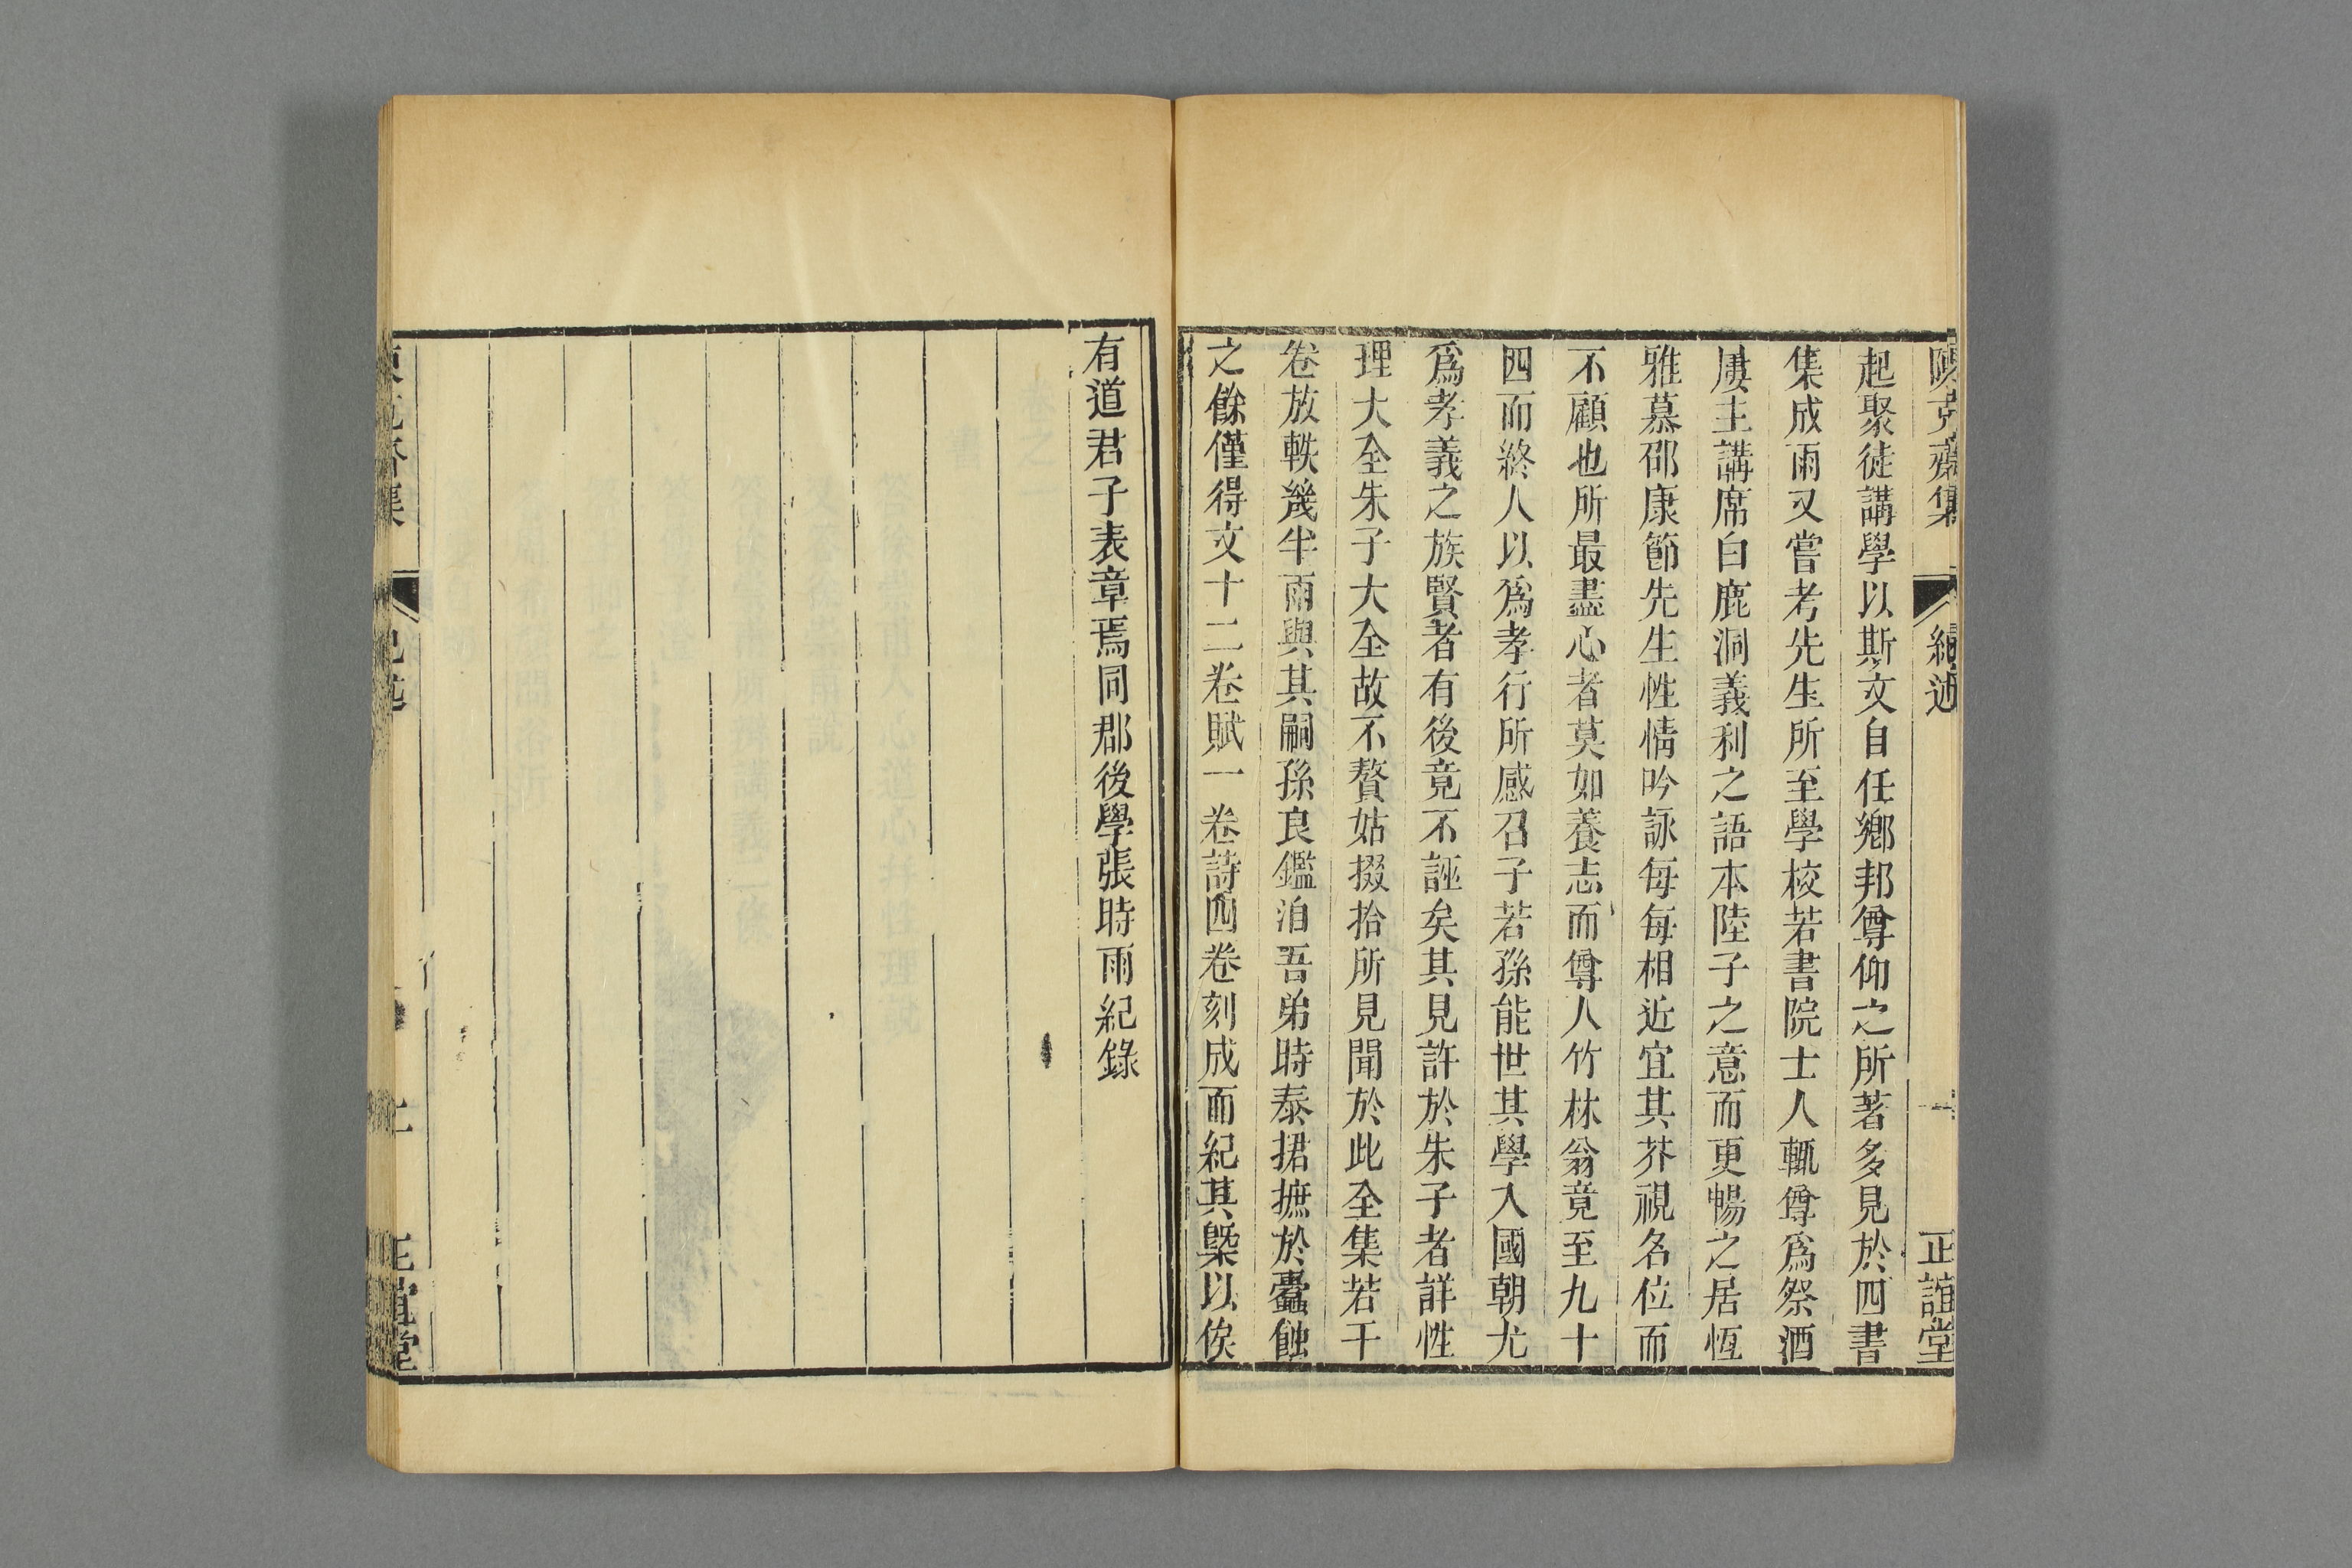 陳克齋集
紀述
一
正誼堂
起聚徒講學以斯文自任鄉邦尊仰之所著多見於四書
集成雨又嘗考先生所至學校若書院士人輒尊爲祭酒
屢主講席白鹿洞義利之語本陸子之意而更暢之居恆
雅慕邵康節先生性情吟詠每每相近宜其芥視名位而
不顧也所最盡心者莫如養志而尊人竹林翁竟至九十
四而終人以爲孝行所感召子若孫能世其學入國朝尤
爲孝義之族賢者有後竟不誣矣其見許於朱子者詳性
理大全朱子大全故不贅姑掇拾所見聞於此全集若干
卷放軼幾半雨與其嗣孫良鑑洎吾弟時泰捃摭於蠹蝕
之餘僅得文十二卷賦一卷詩四卷刻成而紀其槩以俟
有道君子表章焉同郡後學張時雨紀錄